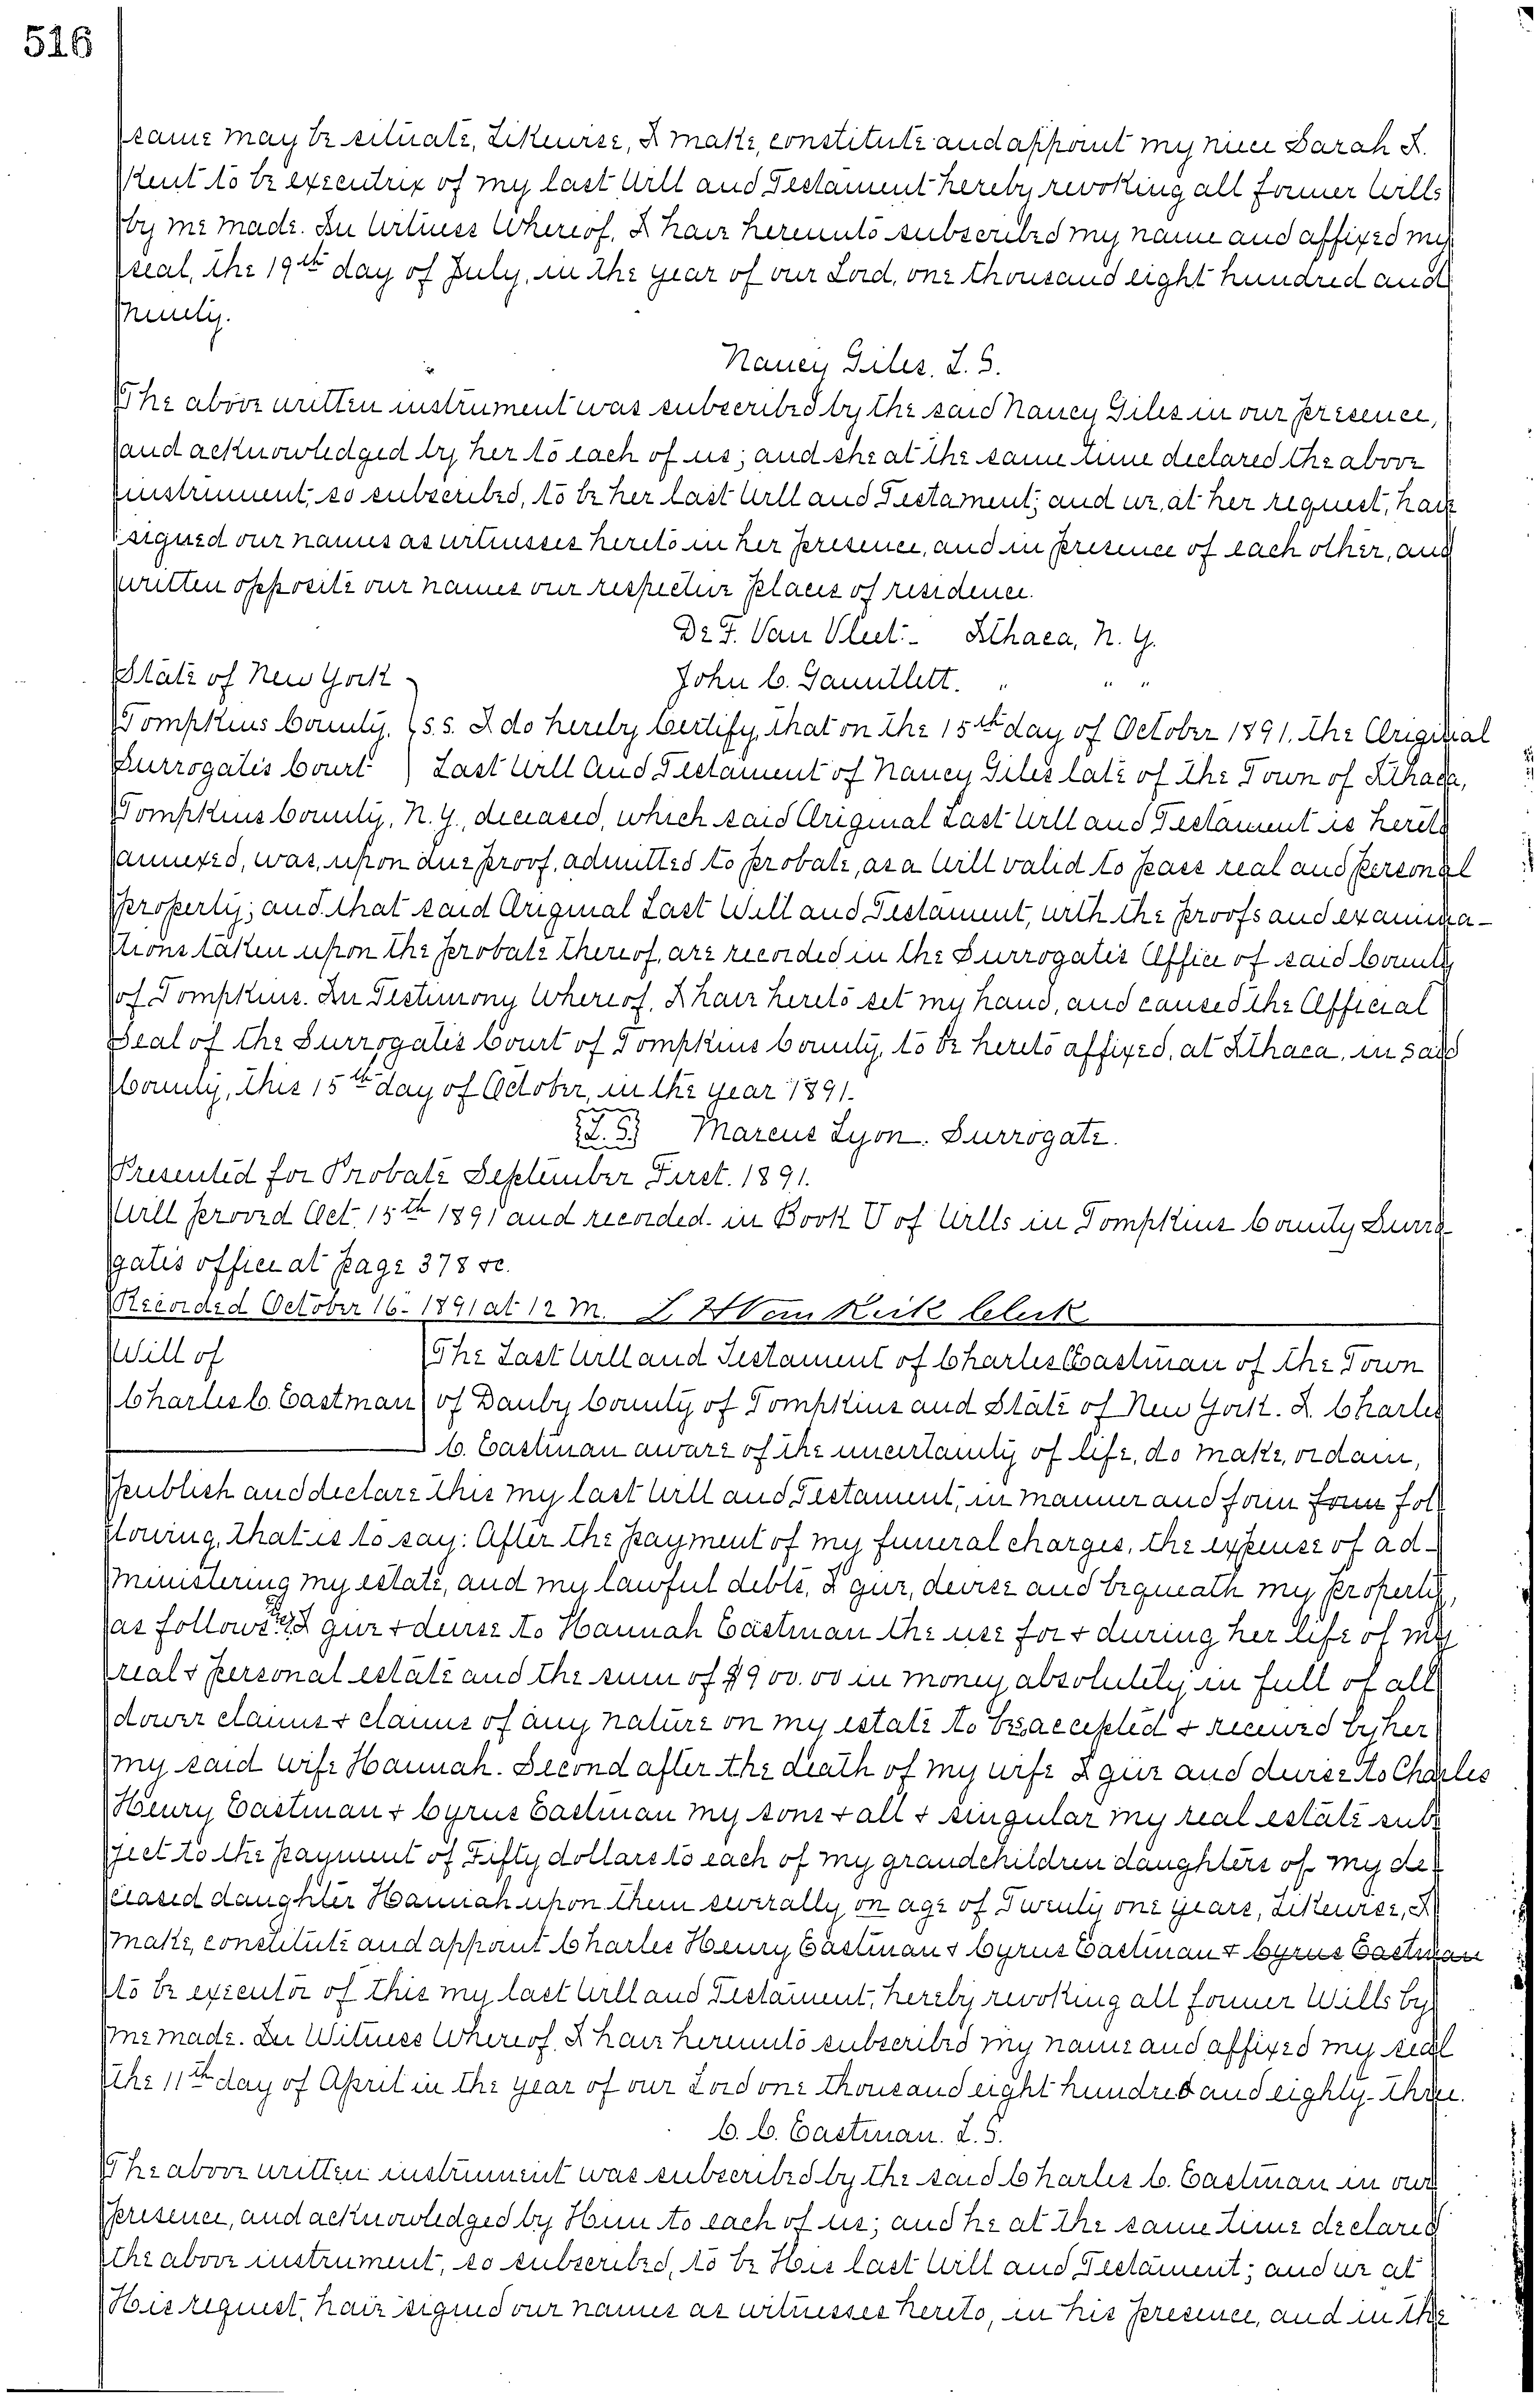 516
same may be situate, Likewise, I make, constitute and appoint my niece Sarah I.
Kent to be executrix of my last Will and Testament hereby revoking all former Wills
by me made. In Witness Whereof, I have hereunto subscribed my name and affixed my
seal, the 19th day of July, in the year of our Lord, one thousand eight hundred and
ninety.
Nancy Giles. L. S.
The above written instrument was subscribed by the said Nancy Giles in our presence,
and acknowledged by her to each of us; and she at the same time declared the above
instrument, so subscribed, to be her last Will and Testament; and we, at her request, have
signed our names as witnesses hereto in her presence, and in presence of each other, and
written opposite our names our respective places of residence.
De F. Van Vleet. - Ithaca, N. Y.
State of New York
John C. Gauntlett. " " "
Tompkins County, } s.s. I do hereby Certify, that on the 15th day of October 1891. the Original
Surrogate's Court ) Last Will and Testament of Nancy Giles late of the Town of Ithaca,
Tompkins County, N. Y., deceased, which said Original Last Will and Testament is hereto
annexed, was, upon due proof, admitted to probate, as a Will valid to pass real and personal
property; and that said Original Last Will and Testament, with the proofs and examina-
tions taken upon the probate thereof, are recorded in the Surrogate's Office of said County
of Tompkins. In Testimony Whereof, I have hereto set my hand, and caused the Official
Seal of the Surrogate's Court of Tompkins County, to be hereto affixed, at Ithaca, in said
County, this 15th day of October, in the year 1891.
{L. S.} Marcus Lyon. Surrogate.
Presented for Probate September First. 1891.
Will proved Oct. 15th 1891 and recorded in Book U of Wills in Tompkins County Surro-
gate's office at page 378 &c.
Recorded October 16 - 1891 at 12 M. L H Van Kirk Clerk
Will of
The Last Will and Testament of Charles C Eastman of the Town
Charles C. Eastman of Danby County of Tompkins and State of New York. I, Charles
C. Eastman aware of the uncertainty of life, do make, ordain,
publish and declare this my last Will and Testament, in manner and form form fol-
lowing, that is to say: After the payment of my funeral charges, the expense of ad-
ministering my estate, and my lawful debts, I give, devise and bequeath my property,
as follows: I give + devise to Hannah Eastman the use for + during her life of my
real + personal estate and the sum of $900.00 in money absolutely in full of all
dower claims + claims of any nature on my estate to be accepted + received by her
my said wife Hannah. Second after the death of my wife I give and devise to Charles
Henry Eastman + Cyrus Eastman my sons + all + singular my real estate sub-
ject to the payment of Fifty dollars to each of my grandchildren daughters of my de-
ceased daughter Hannah upon them severally on age of Twenty one years, Likewise, I
make, constitute and appoint Charles Henry Eastman + Cyrus Eastman + Cyrus Eastman
to be executor of this my last Will and Testament, hereby revoking all former Wills by
me made. In Witness Whereof, I have hereunto subscribed my name and affixed my seal
the 11th day of April in the year of our Lord one thousand eight hundred and eighty-three.
C. C. Eastman. L. S.
The above written instrument was subscribed by the said Charles C. Eastman in our
presence, and acknowledged by Him to each of us; and he at the same time declared
the above instrument, so subscribed, to be His last Will and Testament; and we at
His request, have signed our names as witnesses hereto, in his presence, and in the